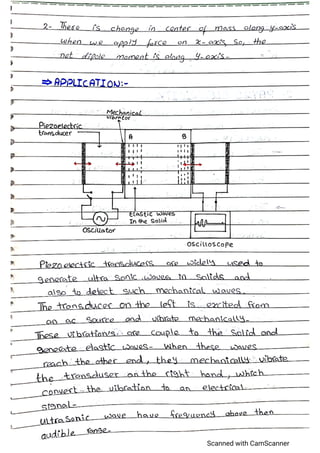 2- There is change in center of mass along y-axis
when we apply force on x-axis so, the
net dipole moment is along y-axis.
⇒ APPLICATION:-
Mechanical
vibrator
Piezoelectric
transducer
A
B
Elastic waves
In the Solid
Oscillator
Oscilloscope
Piezoelectric transducers are widely used to
generate ultra sonic waves in solids and
also to detect such mechanical waves.
The transducer on the left is excited from
an ac source and vibrate mechanically.
These vibration's are couple to the solid and
generate elastic waves- when these waves
reach the other end, they mechanically vibrate
the transduser on the right hand, which
convert the vibration to an electrical
signal-
ultrasonic wave have frequency above then
audible range-
Scanned with CamScanner